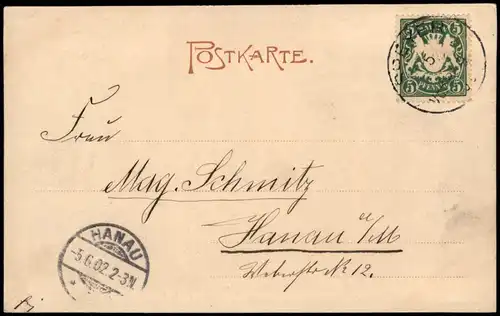 POSTKARTE.
5 5
PFENNIG
Frau
Mag. Schmitz
Hanau a/M
Weberstraße 12.
HANAU
5.6.02.2-3N.